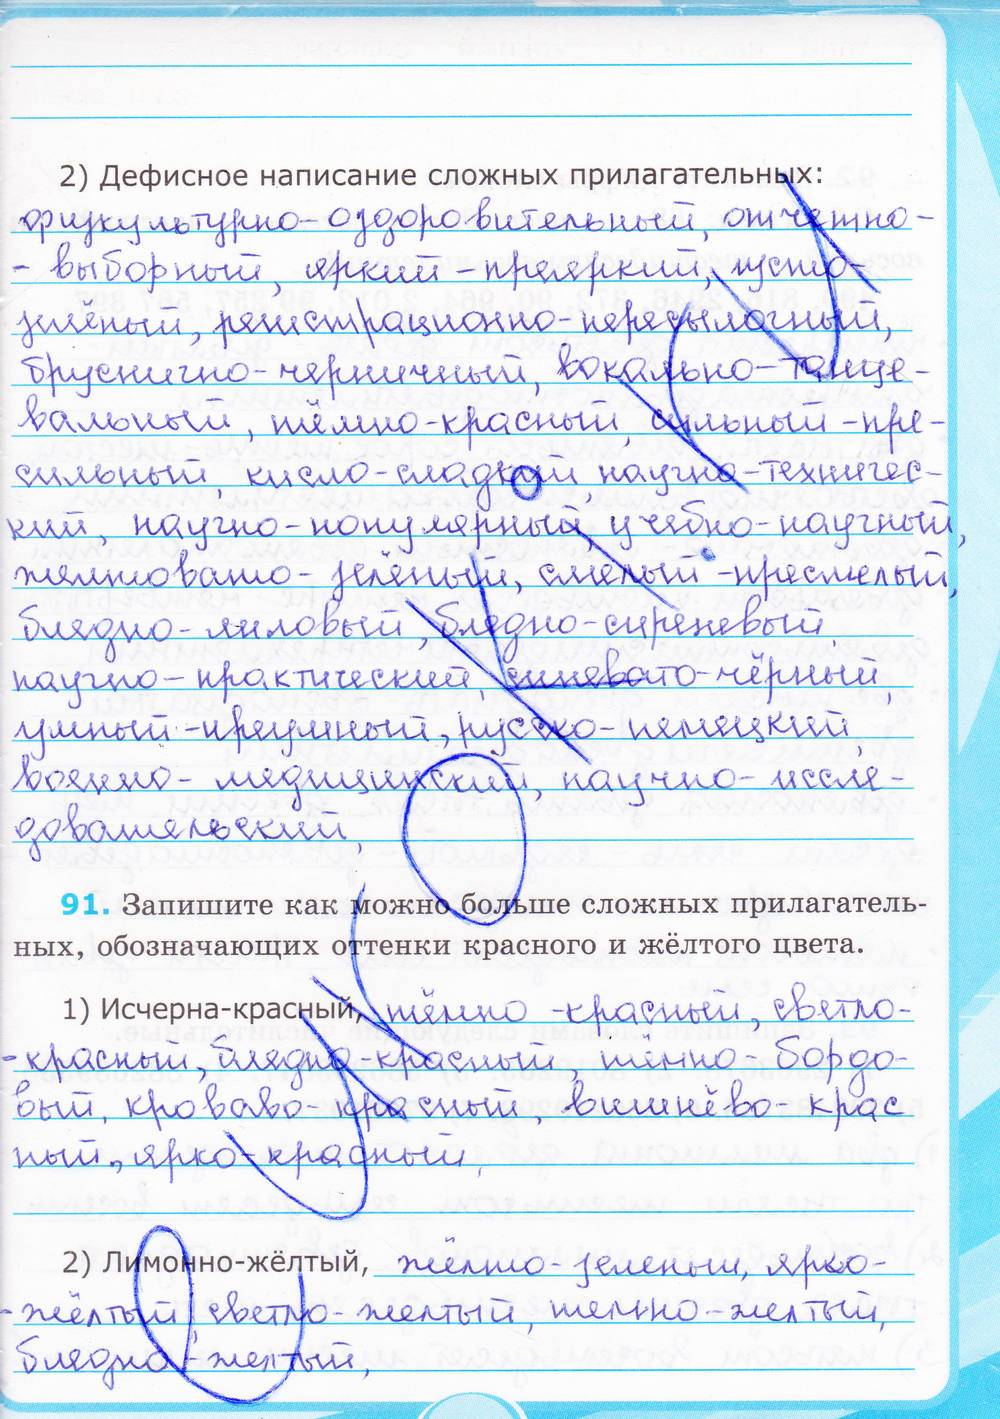 2) Дефисное написание сложных прилагательных:
физкультурно-оздоровительный, отчётно-
- выборный, яркий-преяркий, густо-
зелёный, регистрационно-пересылочный,
бруснично-черничный, вокально-танце-
вальный, тёмно-красный, сильный-пре-
сильный, кисло-сладкий, научно-техничес-
кий, научно-популярный, учебно-научный,
желтовато-зелёный, смелый-пресмелый,
бледно-лиловый, бледно-сиреневый,
научно-практический, синевато-чёрный,
умный-преумный, русско-немецкий,
военно-медицинский, научно-иссле-
довательский,
91. Запишите как можно больше сложных прилагатель-
ных, обозначающих оттенки красного и жёлтого цвета.
1) Исчерна-красный, тёмно-красный, светло-
-красный, бледно-красный, тёмно-бордо-
вый, кроваво-красный, вишнёво-крас
ный, ярко-красный,
2) Лимонно-жёлтый, жёлто-зеленый, ярко-
-жёлтый, светло-желтый, темно-желтый,
бледно-желтый,